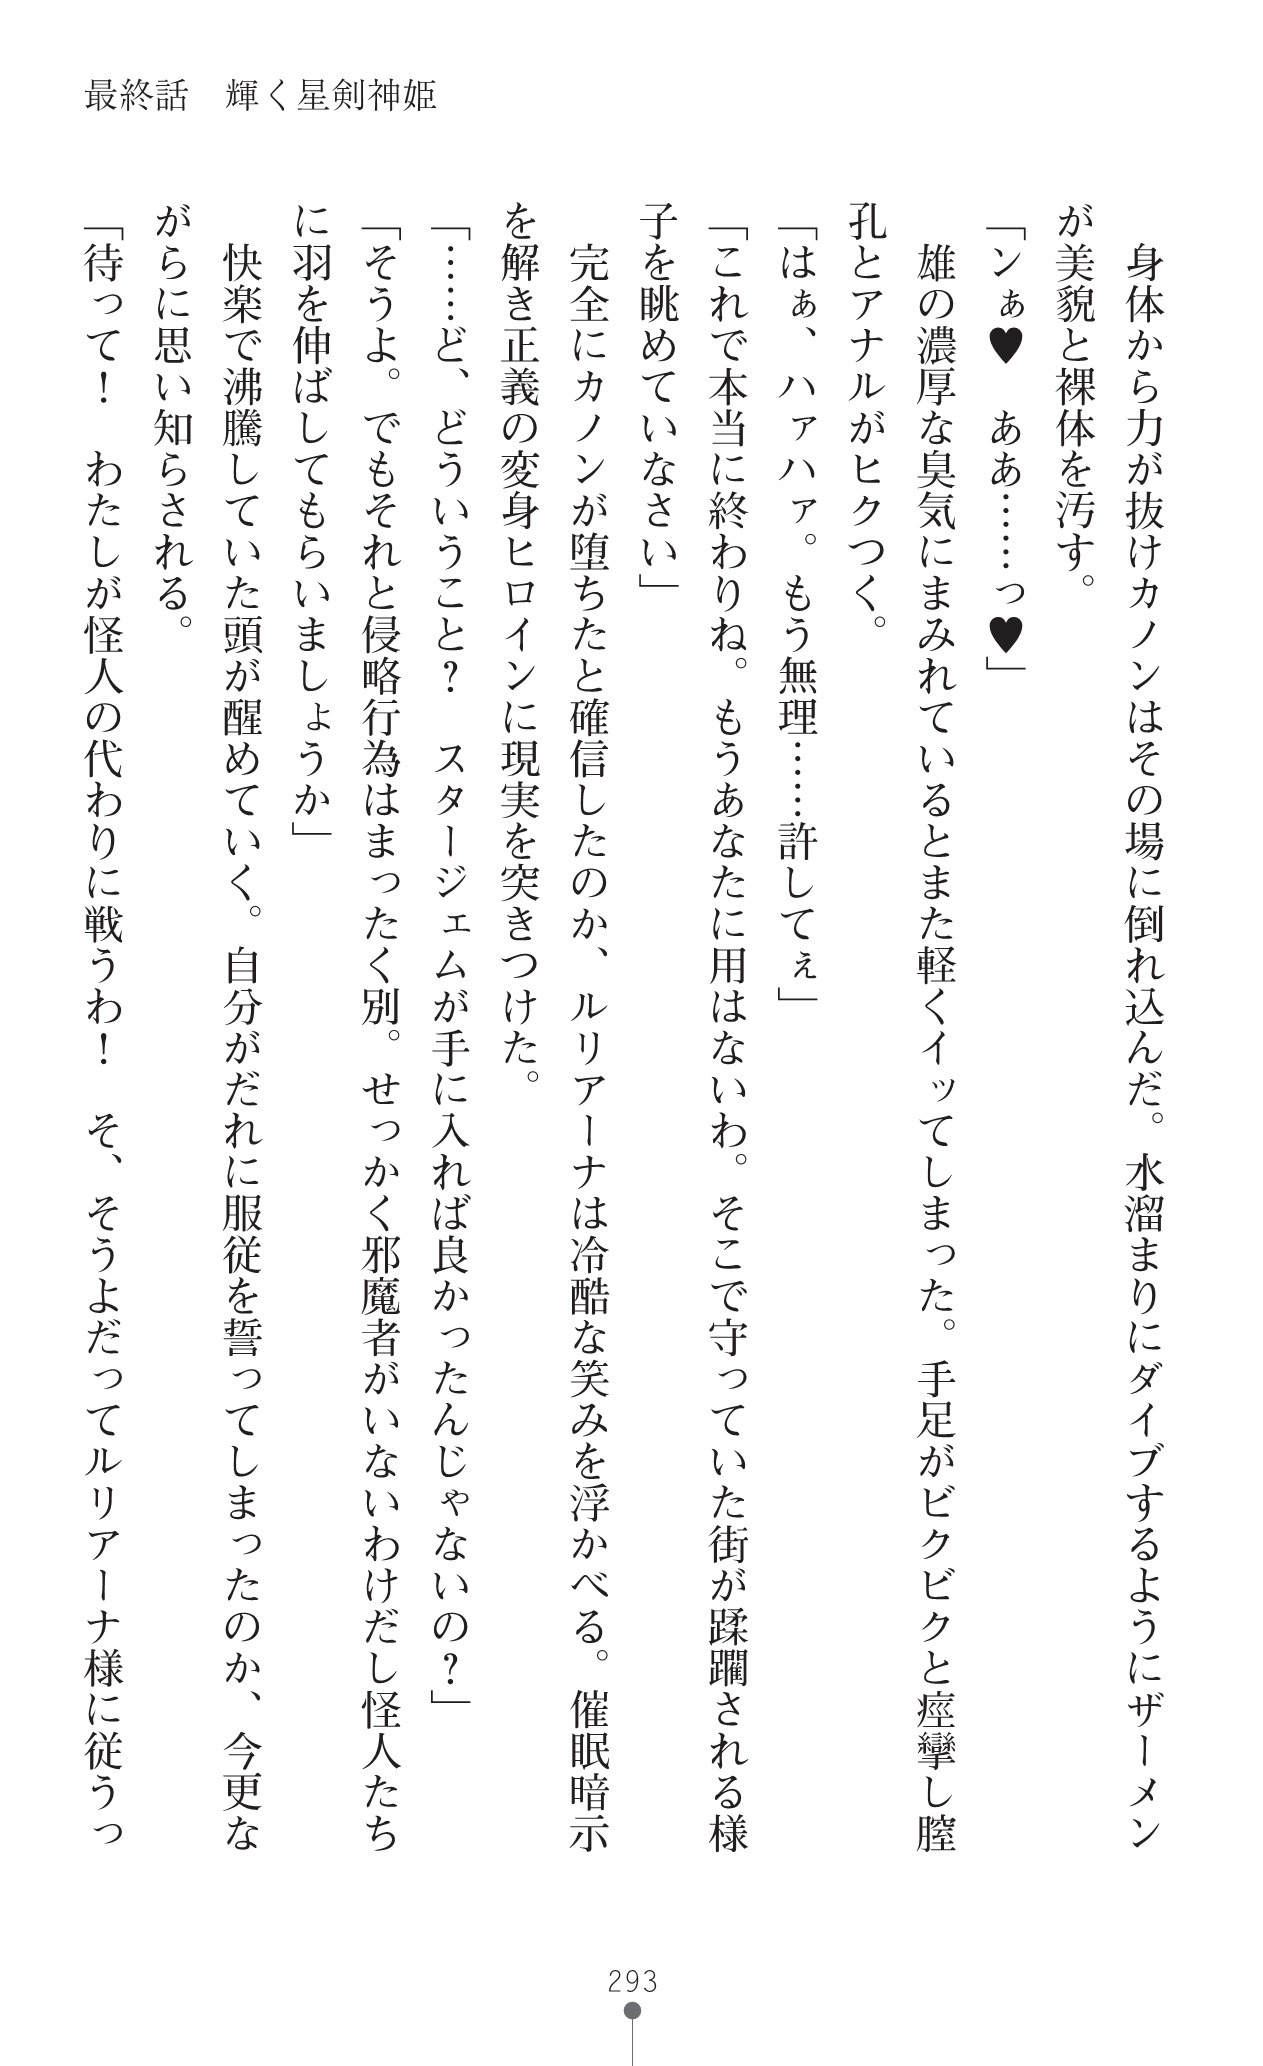 最終話　輝く星剣神姫
　身体から力が抜けカノンはその場に倒れ込んだ。水溜まりにダイブするようにザーメン
が美貌と裸体を汚す。
「ンぁ♥　ああ……っ♥」
　雄の濃厚な臭気にまみれているとまた軽くイッてしまった。手足がビクビクと痙攣し膣
孔とアナルがヒクつく。
「はぁ、ハァハァ。もう無理……許してぇ」
「これで本当に終わりね。もうあなたに用はないわ。そこで守っていた街が蹂躙される様
子を眺めていなさい」
　完全にカノンが堕ちたと確信したのか、ルリアーナは冷酷な笑みを浮かべる。催眠暗示
を解き正義の変身ヒロインに現実を突きつけた。
「……ど、どういうこと？　スタージェムが手に入れば良かったんじゃないの？」
「そうよ。でもそれと侵略行為はまったく別。せっかく邪魔者がいないわけだし怪人たち
に羽を伸ばしてもらいましょうか」
　快楽で沸騰していた頭が醒めていく。自分がだれに服従を誓ってしまったのか、今更な
がらに思い知らされる。
「待って！　わたしが怪人の代わりに戦うわ！　そ、そうよだってルリアーナ様に従うっ
293